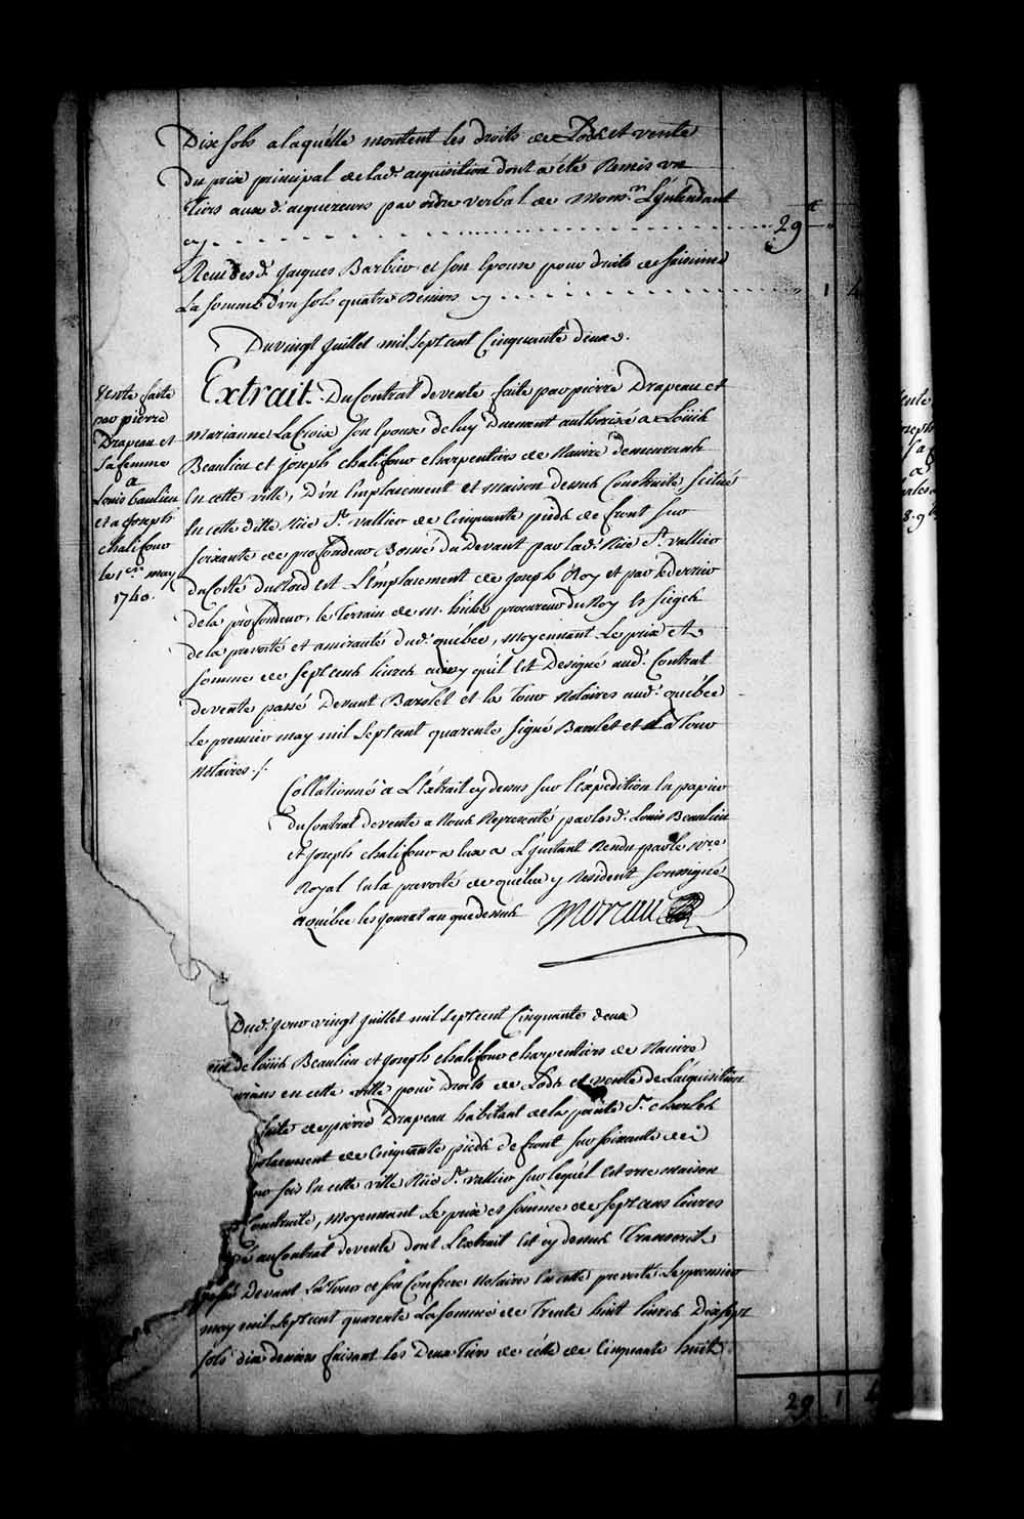 Dix sols a laquelle montent les droits de Lods et vente
Du prix principal de lad. acquisition dont a été Remis un
Tiers aux d. acquereurs par ordre verbal de Monsr. L'yntendant
cy 29
Receu desd. Jacques Barbier et son Epouse pour droits de saisines
La somme d'un sols quatre Deniers cy 1 4
Du vingt Juillet mil Sept cent Cinquante deux.
Vente faite
par pierre
Drapeau et
Sa femme
a
Louis Baulieu
et a Joseph
chalifour
le 1er. may
1740.
Extrait Du Contrat de vente faite par pierre Drapeau et
Marianne La Croix Son Epouse de luy Duement authorisé a Loüis
Beaulieu et Joseph chalifour charpentiers de Navire demeurants
En cette ville, D'un Emplacement et maison dessus Construite scitué
En cette ditte Rüe St. vallier de Cinquante pieds de front sur
soixante de profondeur Borné du Devant par lad. Rüe St. vallier
du Costé du Nord est L'Emplacement de Joseph Roy et par Le derrier
de la profondeur, le Terrain de m. hiché procureur du Roy Es sieges
de la prevoté et amirauté dud. québec, Moyennant Le prix et
somme de sept cents livres ainsy qu'il Est Designé aud. Contrat
de vente passé Devant Barolet et La Tour Notaires aud. québec
Le premier may mil Sept cent quarente Signé Barolet et La Tour
Notaires ./.
Collationné a L'Extrait cy dessus sur l'Expedition En papier
du Contrat de vente a Nous Representé par lesd. Louis Beaulieu
et Joseph chalifour a Eux a L'ynstant Rendu par le Nre.
Royal En la prevoté de québec y Resident soussigné
a québec les Jour et an que dessus Moreau
Dud. Jour vingt Juillet mil sept cent Cinquante deux
de Loüis Beaulieu et Joseph chalifour charpentiers de Navire
en cette ville pour Droits de Lods et vente de L'acquisition
faite de pierre Drapeau habitant de la pointe St. charles
de Cinquante pieds de front sur soixante de
En cette ville Rüe St. vallier sur lequel Est une maison
Construite, Moyennant Le prix et somme de sept cens livres
au Contrat de vente dont L'Extrait Est cy dessus Transcrit
passé Devant La Tour et son Confrere Notaires En cette prevoté Le premier
may mil Sept cent quarente La somme de Trente huit livres Dix sept
sols dix deniers faisant les Deux Tiers de celle de Cinquante huit
29 1 4